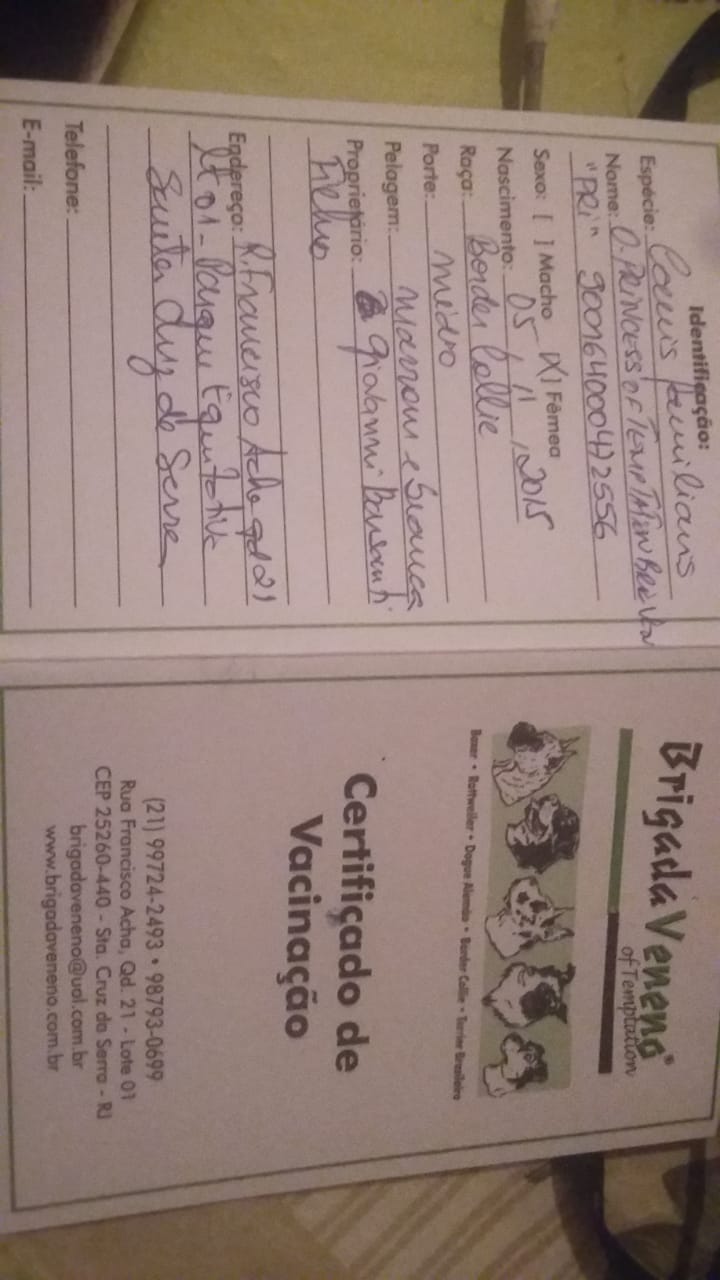 Identificação:
Espécie: Canis familiaris
Nome: O. PRINCESS OF TEMPTATION
"PRI" 900164000472556
Sexo: [ ] Macho [X] Fêmea
Nascimento: 05, 11, 2015
Raça: Border Collie
Porte: médio
Pelagem: marrom e branca
Proprietário: Giovanni
Filho
Endereço: R. Francisco Acha qd 21
lt 01 - Parque Equitativa
Santa Cruz da Serra
Telefone:
E-mail:
Brigada Veneno®
of Temptation
Boxer • Rottweiler • Dogue Alemão • Border Collie • Terrier Brasileiro
Certificado de
Vacinação
(21) 99724-2493 • 98793-0699
Rua Francisco Acha, Qd. 21 - Lote 01
CEP 25260-440 - Sta. Cruz da Serra - RJ
brigadaveneno@uol.com.br
www.brigadaveneno.com.br